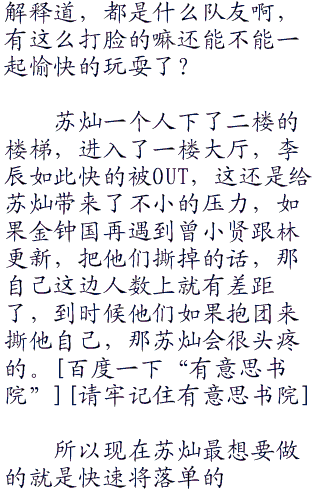 解释道，都是什么队友啊，
有这么打脸的嘛还能不能一
起愉快的玩耍了？
苏灿一个人下了二楼的
楼梯，进入了一楼大厅，李
辰如此快的被OUT，这还是给
苏灿带来了不小的压力，如
果金钟国再遇到曾小贤跟林
更新，把他们撕掉的话，那
自己这边人数上就有差距
了，到时候他们如果抱团来
撕他自己，那苏灿会很头疼
的。[百度一下“有意思书
院”][请牢记住有意思书院]
所以现在苏灿最想要做
的就是快速将落单的